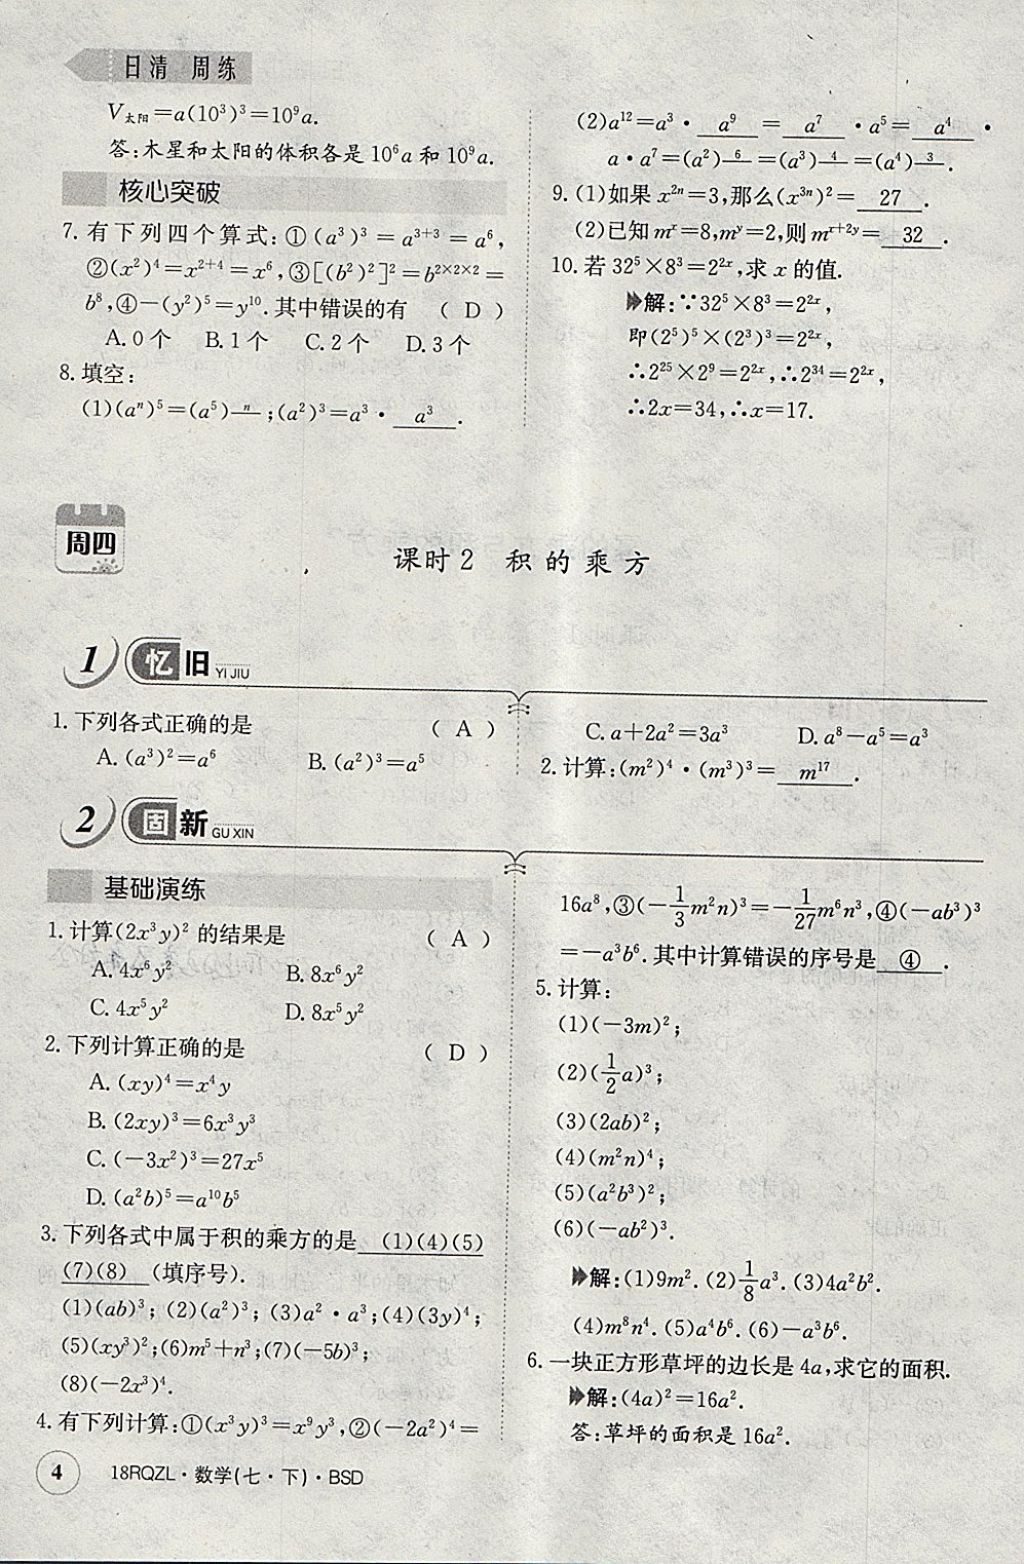 日清 周练
V太阳=a(10³)³=10⁹a.
答:木星和太阳的体积各是10⁶a和10⁹a.
核心突破
7.有下列四个算式:①(a³)³=a³⁺³=a⁶,
②(x²)⁴=x²⁺⁴=x⁶,③[(b²)²]²=b²ˣ²ˣ²=
b⁸,④-(y²)⁵=y¹⁰.其中错误的有 ( D )
A.0个 B.1个 C.2个 D.3个
8.填空:
(1)(aⁿ)⁵=(a⁵)ⁿ;(a²)³=a³· a³ .
(2)a¹²=a³· a⁹ = a⁷ ·a⁵= a⁴ ·
a·a⁷=(a²)⁶=(a³)⁴=(a⁴)³.
9.(1)如果x²ⁿ=3,那么(x³ⁿ)²= 27 .
(2)已知mˣ=8,mʸ=2,则mˣ⁺²ʸ= 32 .
10.若32⁵×8³=2²ˣ,求x的值.
解:∵32⁵×8³=2²ˣ,
即(2⁵)⁵×(2³)³=2²ˣ,
∴2²⁵×2⁹=2²ˣ,∴2³⁴=2²ˣ,
∴2x=34,∴x=17.
周四
课时2 积的乘方
1 忆旧 YI JIU
1.下列各式正确的是 ( A )
A.(a³)²=a⁶ B.(a²)³=a⁵
C.a+2a²=3a³ D.a⁸-a⁵=a³
2.计算:(m²)⁴·(m³)³= m¹⁷ .
2 固新 GU XIN
基础演练
1.计算(2x³y)²的结果是 ( A )
A.4x⁶y² B.8x⁶y²
C.4x⁵y² D.8x⁵y²
2.下列计算正确的是 ( D )
A.(xy)⁴=x⁴y
B.(2xy)³=6x³y³
C.(-3x²)³=27x⁵
D.(a²b)⁵=a¹⁰b⁵
3.下列各式中属于积的乘方的是 (1)(4)(5)
(7)(8) (填序号).
(1)(ab)³;(2)(a²)³;(3)a²·a³;(4)(3y)⁴;
(5)(xy³)²;(6)m⁵+n³;(7)(-5b)³;
(8)(-2x³)⁴.
4.有下列计算:①(x³y)³=x⁹y³,②(-2a²)⁴=
16a⁸,③(-1/3m²n)³=-1/27m⁶n³,④(-ab³)³
=-a³b⁶.其中计算错误的序号是 ④ .
5.计算:
(1)(-3m)²;
(2)(1/2a)³;
(3)(2ab)²;
(4)(m²n)⁴;
(5)(a²b³)²;
(6)(-ab²)³.
解:(1)9m².(2)1/8a³.(3)4a²b².
(4)m⁸n⁴.(5)a⁴b⁶.(6)-a³b⁶.
6.一块正方形草坪的边长是4a,求它的面积.
解:(4a)²=16a².
答:草坪的面积是16a².
4 18RQZL·数学(七·下)·BSD